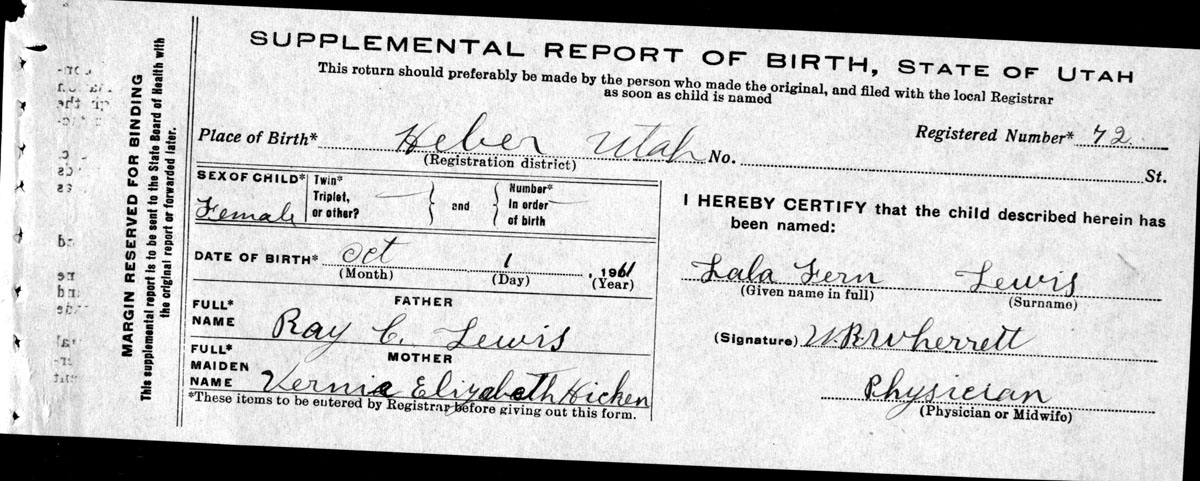 SUPPLEMENTAL REPORT OF BIRTH, STATE OF UTAH
This return should preferably be made by the person who made the original, and filed with the local Registrar
as soon as child is named
MARGIN RESERVED FOR BINDING
This supplemental report is to be sent to the State Board of Health with
the original report or forwarded later.
Place of Birth* Heber Utah No. St.
(Registration district)
Registered Number* 72
SEX OF CHILD* Female
Twin*
Triplet,
or other?
and
Number*
in order
of birth
DATE OF BIRTH* Oct 1 , 1911
(Month) (Day) (Year)
FATHER
FULL*
NAME Ray C. Lewis
MOTHER
FULL*
MAIDEN
NAME Vernie Elizabeth Hicken
*These items to be entered by Registrar before giving out this form.
I HEREBY CERTIFY that the child described herein has
been named:
Lala Fern Lewis
(Given name in full) (Surname)
(Signature) W.R. Wherrett
Physician
(Physician or Midwife)